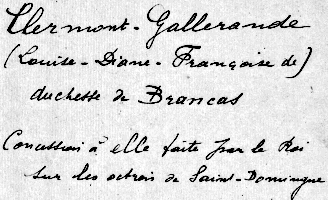 Clermont-Gallerande
(Louise-Diane-Françoise de)
duchesse de Brancas
Concession à elle faite par le Roi
sur les octrois de Saint-Domingue